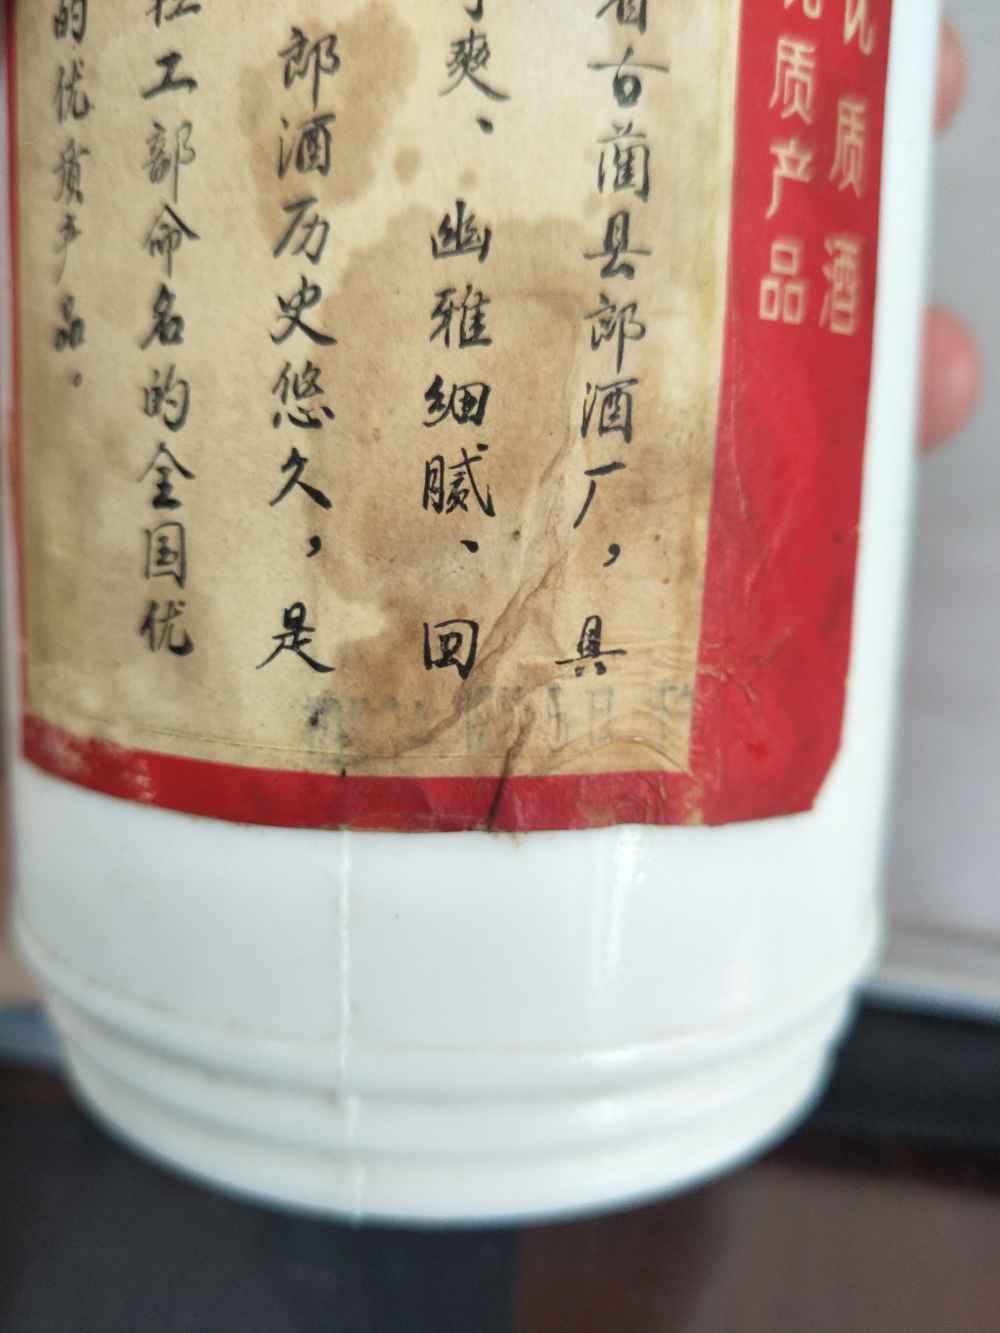 优质酒
优质产品
省古蔺县郎酒厂，具
爽、幽雅细腻、回
郎酒历史悠久，是
轻工部命名的全国优
的优质产品。